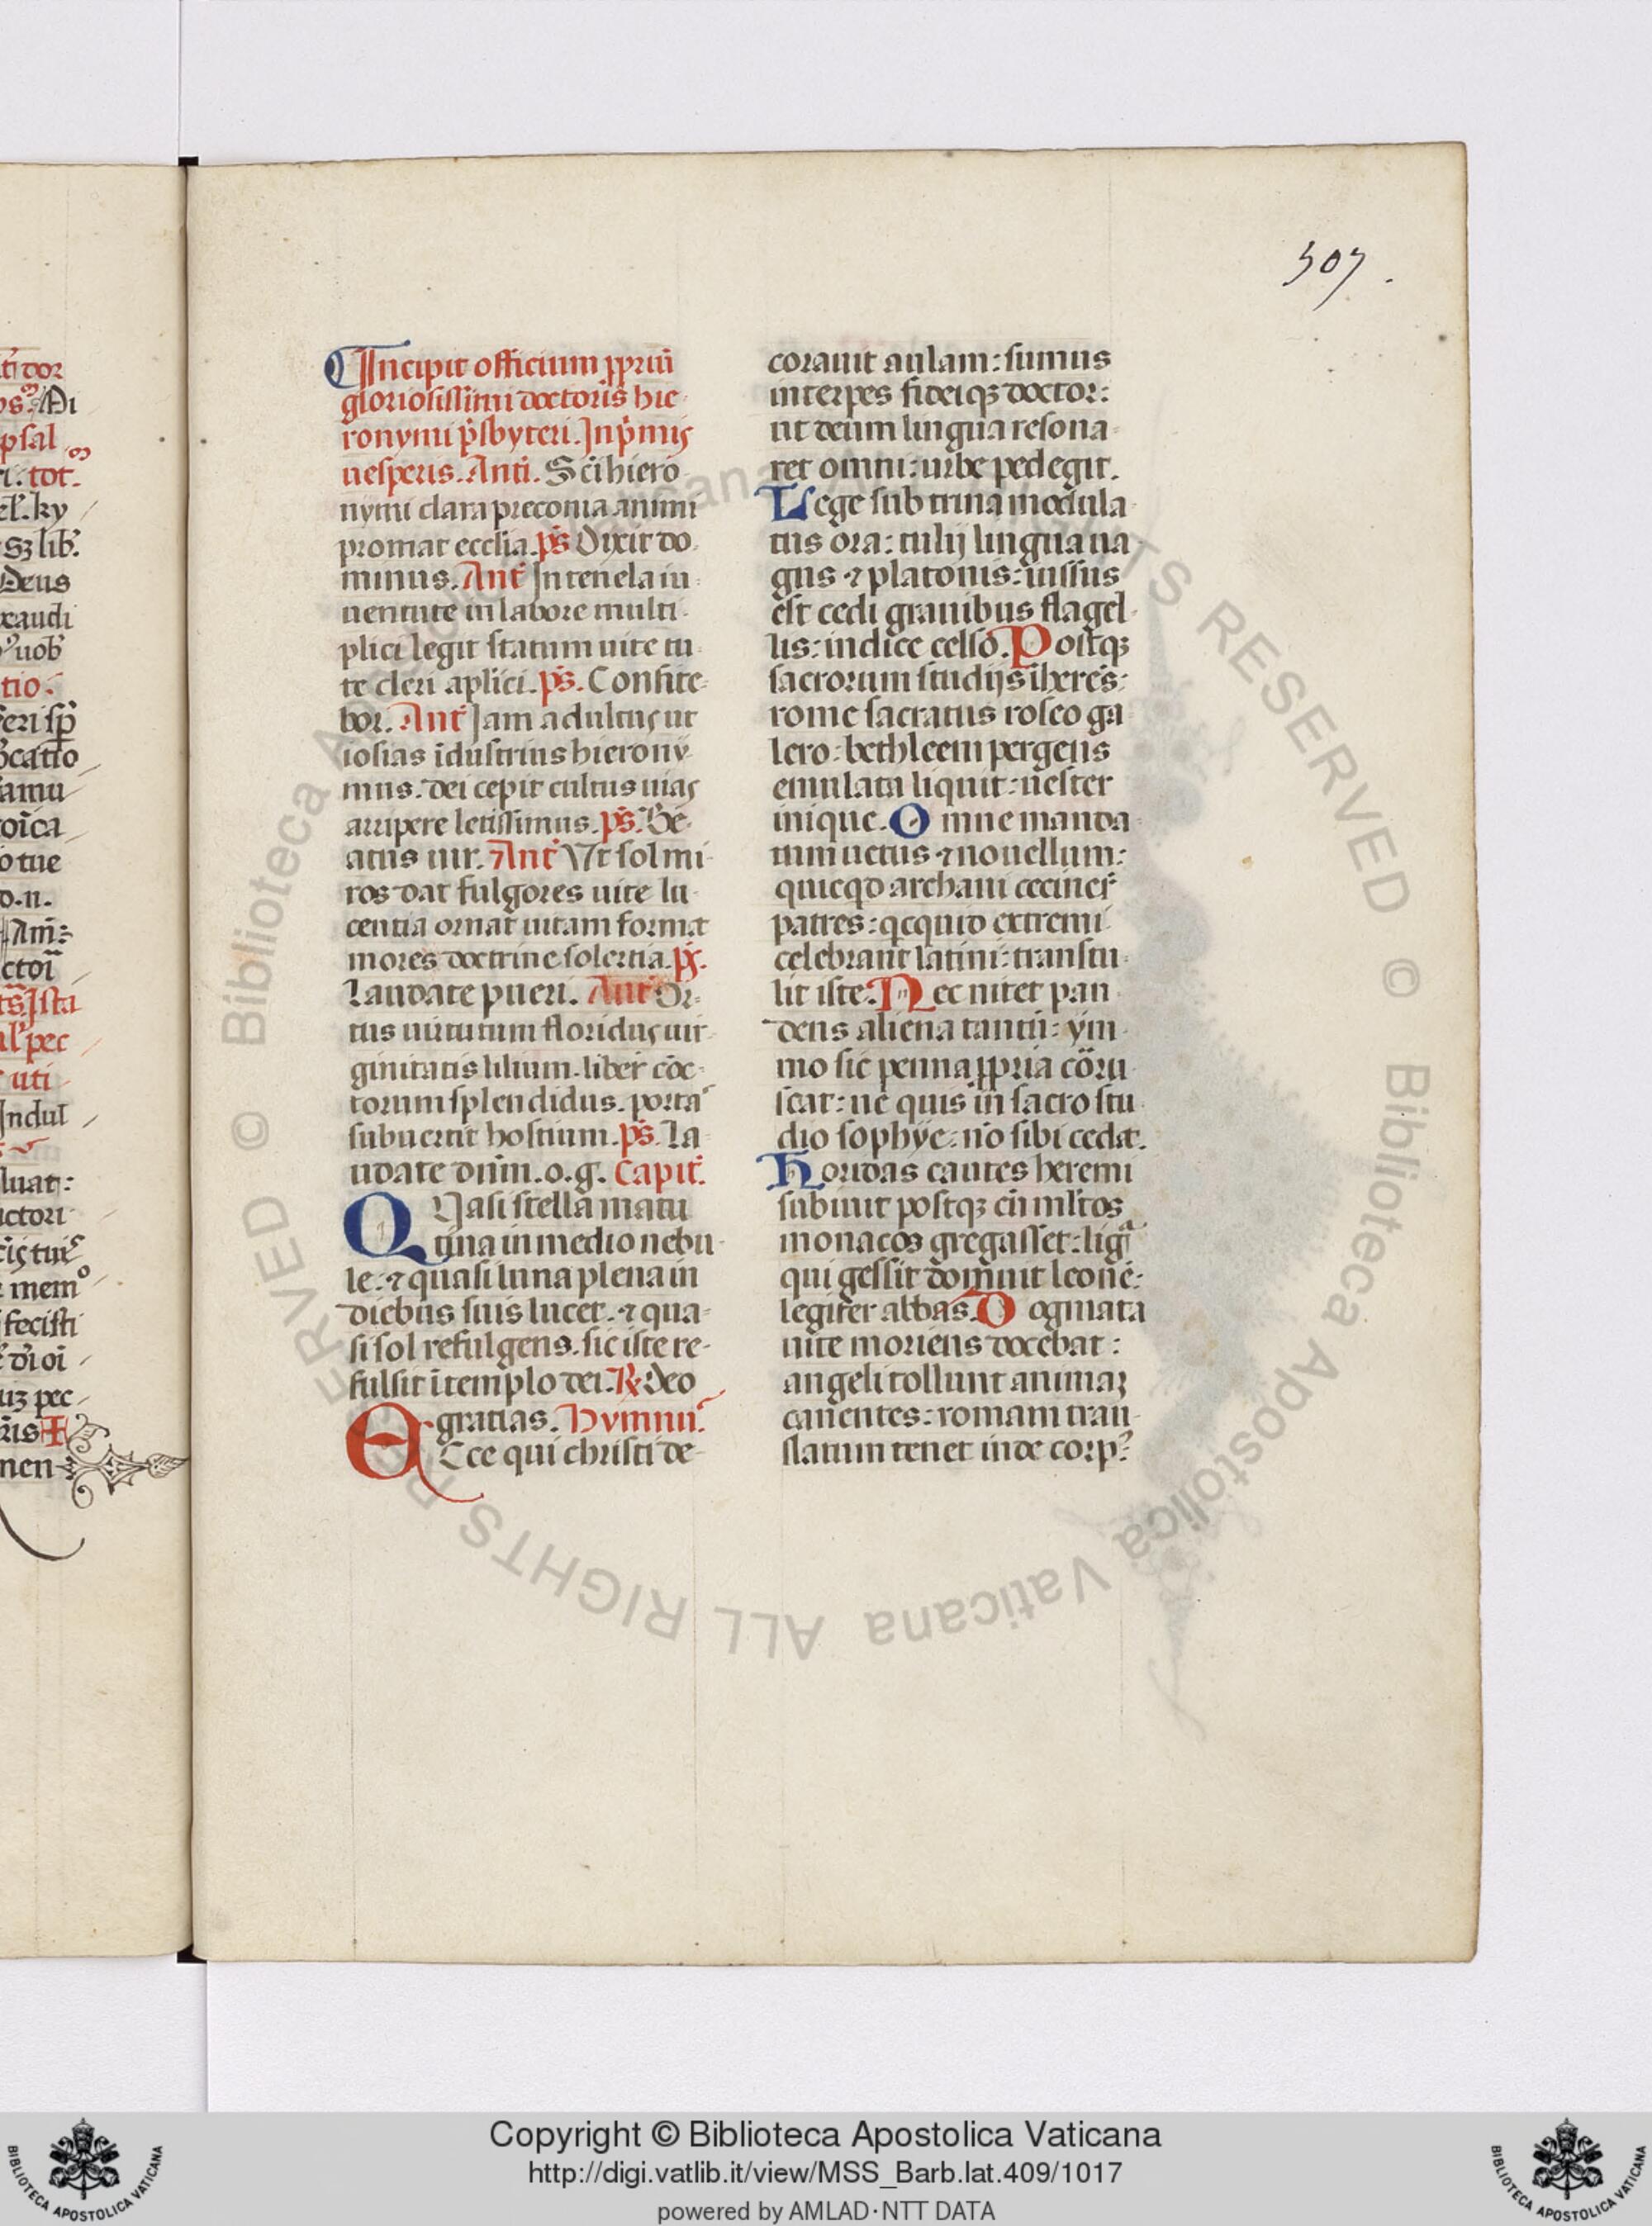 507.
Incipit officium ꝓpriū
gloriosissimi doctoris hie
ronymi p̄sbyteri. Inp̄mis
uesperis. Anti. Sci hiero
nymi clara preconia animi
promat ecclia. ps̄ Dixit do
minus. Ant̄ In tenela iu
uentute in labore multi
plici legit statum uite tu
te cleri aplici. ps̄. Confite
bor. Ant̄ Iam adultus ut
iosias īdustrius hierony
mus. dei cepit cultus uias
arripere letissimus. ps̄. Be
atus uir. Ant̄ Vt sol mi
ros dat fulgores uite lu
centia ornat uitam format
mores doctrine solertia. ps̄.
Laudate pueri. Ant̄ Or
tus uirtutum floridus uir
ginitatis lilium. liber
torum splendidus. porta
subuertit hostium. ps̄. La
udate dn̄m. o. g. Capit̄.
QVasi stella matu
tina in medio nebu
le. ⁊ quasi luna plena in
diebus suis lucet. ⁊ qua
si sol refulgens. sic iste re
fulsit ī templo dei. ℟ Deo
gratias. Hymnus
Ecce qui christi de
corauit aulam: sumus
interpes fideiqꝫ doctor:
ut deum lingua resona
ret omni: urbe pedegit.
Lege sub trina modula
tus ora: tulij lingua ua
gus ⁊ platonis: uissus
est cedi grauibus flagel
lis: iudice celso. Postqꝫ
sacrorum studijs iherēs:
rome sacratus roseo ga
lero: bethleem pergens
emulata liquit: uester
inique. Omne manda
tum uetus ⁊ nouellum:
quicqd archani cecinēr
patres: qcquid extremi
celebrant latini: transtu
lit iste. Nec nitet pan
dens aliena tantū: ym
mo sic penna ꝓpria coru
scat: ne quis in sacro stu
dio sophye: nō sibi cedat.
Horidas cautes heremi
subiuit postqꝫ cū ml̄tos
monacos gregasset: lig
qui gessit domuit leonē:
legifer abbas. Dogmata
uite moriens docebat:
angeli tollunt animaꝫ
canentes: romam tran
slatum tenet inde corpꝰ
Copyright © Biblioteca Apostolica Vaticana
http://digi.vatlib.it/view/MSS_Barb.lat.409/1017
powered by AMLAD·NTT DATA
BIBLIOTECA APOSTOLICA VATICANA
BIBLIOTECA APOSTOLICA VATICANA
© Biblioteca Apostolica Vaticana ALL RIGHTS RESERVED © Biblioteca Apostolica Vaticana ALL RIGHTS RESERVED